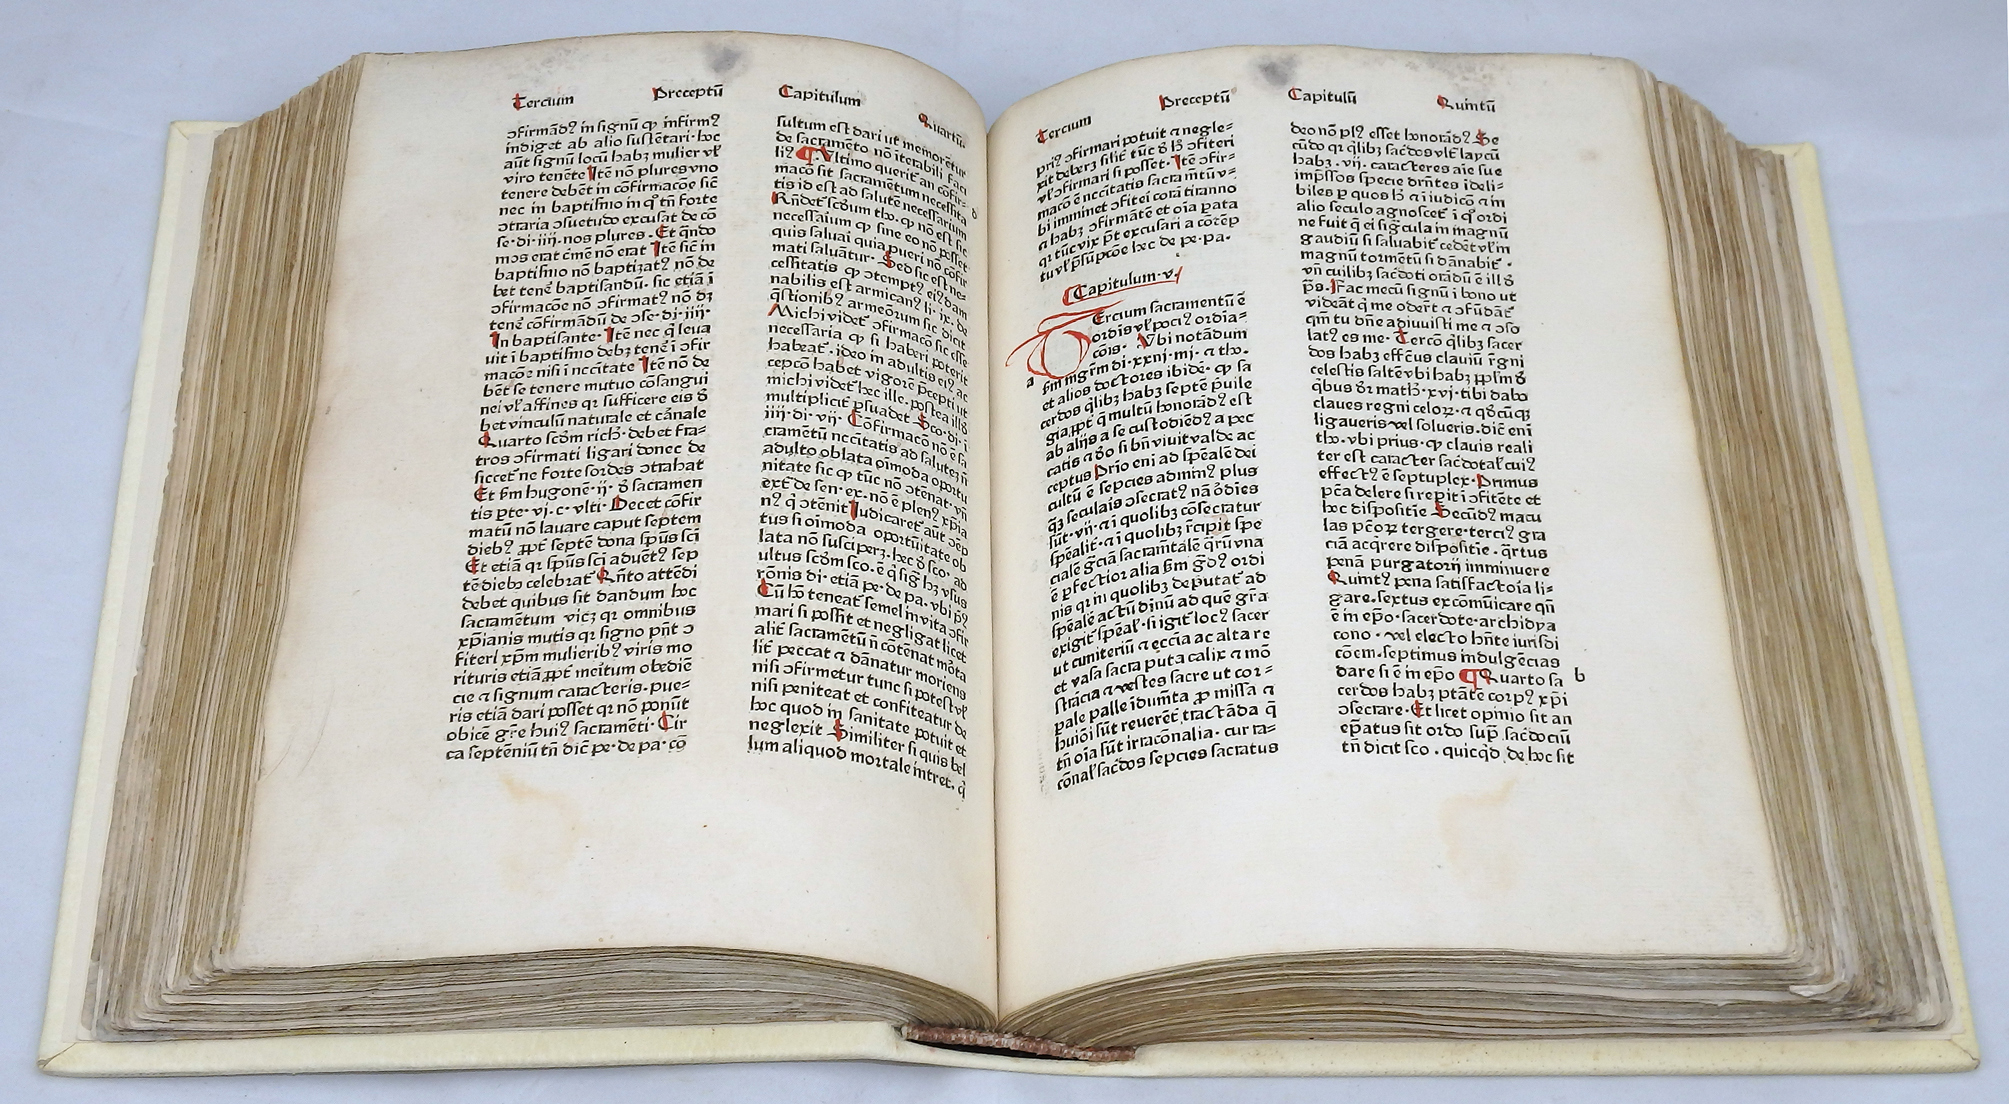 Tercium Preceptū Capitulum Quartū
ɔfirmādꝰ in signū ꝙ infirmꝰ
indiget ab alio sustētari · hoc
aūt signū locū habꝫ mulier vƚ
viro tenēte Itē nō plures vno
tenere debēt in cōfirmacōe sic̄
nec in baptismo in qͦ tn̄ forte
ɔtraria ɔsuetudo excusat de cō
se·di·iiij·nos plures · Et qn̄do
mos erat c̄mē nō erat Itē sic̄ in
baptismo nō baptizatꝰ nō de
bet tenē baptisandū · sic etiā ī
ɔfirmacōe nō ɔfirmatꝰ nō dꝫ
tenē cōfirmādū de ɔse·di·iiij·
In baptisante · Itē nec qͥ leua
uit ī baptismo debꝫ tenē ī ɔfir
macōe nisi ī nccitate Itē nō de
bēt se tenere mutuo cōsangui
nei vƚ affines qr sufficere eis ꝺ
bet vinculū naturale et cānale
Quarto scōm rich · debet fra-
tros ɔfirmati ligari donec de
siccet̄ ne forte sordes ɔtrahat
Et ẜm hugonē·ij·ꝺ sacramen
tis ꝑte·vj·c·vlti· Decet cōfir
matū nō lauare caput septem
diebꝰ ꝓpt̄ septē dona spūs sci̅
Et etiā qr spūs sci̅ aduētꝰ sep
tē diebꝫ celebrat̄ Qn̄to attēdi
debet quibus sit dandum hoc
sacramētum vicꝫ qr omnibus
xp̄ianis mutis qr signo pn̄t ɔ
fiteri xp̄m mulieribꝰ viris mo
rituris etiā ꝓpt̄ meitum obediē
cie ⁊ signum caracteris · pue-
ris etiā dari posset qr nō ponūt
obicē gr̄e huiꝰ sacramēti · Cir
ca septēniū tn̄ dic̄ pe·de pa·cō
sultum est dari ut memorētur
de sacramēto nō iterabili faci
liꝰ ¶ Vltimo querit̄ an cōfir-
macō sit sacramētum necessita
tis id est ad salutē necessarium
Rn̄det scōum tho · ꝙ nō est sic
necessaium ꝙ sine eo nō posset
quis saluai quia pueri nō cōfir
mati saluātur · Sed sic est ne-
cessitatis ꝙ ɔtemptꝰ eiꝰ dam
nabilis est armicanꝰ li·ix·de
q̄stionibꝰ armeōrum sic dicit
Michi videt̄ ɔfirmacō sic esse
necessaria ꝙ si haberi poterit
habeat̄ · ideo in adultis eiꝰ ac
cepcō habet vigorē ꝑcepti ut
michi videt̄ hec ille · postea illꝺ
multiplicit̄ ꝑsuadet · Sco·di·ī
iiij·di·vij· Cōfirmacō nō ē sa
cramētū nccitatis ad salutē in
adulto oblata oīmoda oportu
nitate sic ꝙ tūc nō ɔtēnat · vn̄
ext̄ de sen·ex·nō ē plenꝰ xp̄ia
nꝰ qͥ ɔtēnit Iudicaret̄ aūt ɔtēp
tus si oīmoda oportūitate ob
lata nō susciperꝫ · hec ꝺ sco · ad
ultus scōm sco·ē qͥ sigͥ hꝫ vsus
rōnis di·etiā pe·de pa·vbi pͥꝰ
Cū hͦ teneat̄ semel in vita ɔfir
mari si possit et negligat licet
alit̄ sacramētū n̄ cōtēnat mōta
lit̄ peccat ⁊ dānatur moriens
nisi ɔfirmetur tunc si potest vƚ
nisi peniteat et confiteatur de
hoc quod in sanitate potuit et
neglexit Similiter si quis bel
lum aliquod mortale intret · qͥ
Tercium Preceptū Capitulū Quintū
priꝰ ɔfirmari potuit ⁊ negle-
xit deberꝫ silit̄ tūc ꝺ hͦ ɔfiteri
vƚ ɔfirmari si posset · Itē ɔfir-
macō ē nccitatis sacramtū v-
bi imminet ɔfitei corā tiranno
⁊ habꝫ ɔfirmātē et oīa ꝑata
qr tūc vix pt̄ excusari a cōtēp
tu vƚ psūpcōe hec de pe·pa·
Capitulum·v·
Tercium sacramentū ē
ordis vƚ pociꝰ ordia-
cōis · Vbi notādum
a
ẜm mgr̄m di·xxiij·iiij·⁊ tho·
et alios doctores ibidē · ꝙ sa
cerdos qͥlibꝫ habꝫ septē p̄uile
gia ꝓpt̄ q̄ multū honorādꝰ est
ab alijs a se custodiēdꝰ a pec
catis ⁊ dō si bn̄ viuit valde ac
ceptus Prio eni ad spēale dei
cultū ē sepcies admīnꝰ plus
qͣꝫ seculais ɔsecratꝰ nā ōdies
sūt·vij·⁊ ī quolibꝫ cōsecratur
spēalit̄·⁊ ī quolibꝫ r̄cipit spe
cialē gr̄ciā sacramtālē qͣrū vna
ē ꝑfectior alia ẜm gdꝰ ordi
nis qr in quolibꝫ deputat̄ ad
spēalē actū diuinū ad quē gr̄a
exigit̄ spēaƚ · si igit̄ locꝰ sacer
ut cimiteriū ⁊ eccīa ac altare
et vasa sacra puta calix ⁊ mō
strācia ⁊ vestes sacre ut cor-
ꝑale palle idumēta ꝓ missa ⁊
huiōi sūt reuerēt̄ tractāda q̄
tn̄ oīa sūt irracōnalia · cur ra-
cōnaƚ sac̄dos sepcies sacratus
deo nō plꝰ esset honorādꝰ Se
cūdo qr qͥlibꝫ sac̄dos vlt̄ laycū
habꝫ·vij·caracteres aīe sue
imp̄ssos specie drn̄tes ideli-
biles ꝑ quos hͥ ⁊ ī iudicō ⁊ in
alio seculo agnoscet̄ ī qͦ ordi
ne fuit qͥ ei sigͥcula in magnū
gaudiū si saluabit̄ cedēt vƚ in
magnū tormētū si dānabit̄ ·
vn̄ cuilibꝫ sac̄doti orādū ē illꝺ
ps̄·Fac mecū signū ī bono ut
videāt qͥ me oder̄t ⁊ ɔfūdāt̄
qm̄ tu dn̄e adiuuisti me ⁊ ɔso
latꝰ es me · Tercō qͥlibꝫ sacer
dos habꝫ effcūs clauiū r̄gni
celestis saltē vbi habꝫ ꝓplm ꝺ
qͥbus dꝛ math·xvj·tibi dabo
claues regni celoꝝ·⁊ qd̄cūqꝫ
ligaueris vel solueris · dic̄ eni
tho·vbi prius·ꝙ clauis reali
ter est caracter sac̄dotaƚ cuiꝰ
effectꝰ ē septuplex · Primus
pc̄a delere si reꝑit ī ɔfitēte et
hec dispositie Secūdꝰ macu
las pc̄oꝝ tergere · tercꝰ gra
ciā acqͥrere dispositie · qͣrtus
penā purgatorij imminuere
Quintꝰ pena satisfactoia li-
gare · sextus excōmūicare qn̄
ē in epō · sacerdote · archidya
cono · vel electo hn̄te iurisdi
cōem · septimus indulgēcias
dare si ē in epō ¶ Quarto sa b
cerdos habꝫ ptātē corpꝰ xp̄i
ɔsecrare · Et licet opinio sit an
ep̄atus sit ordo sup̄ sac̄dociū
tn̄ dicit sco · quicqͥd de hoc sit